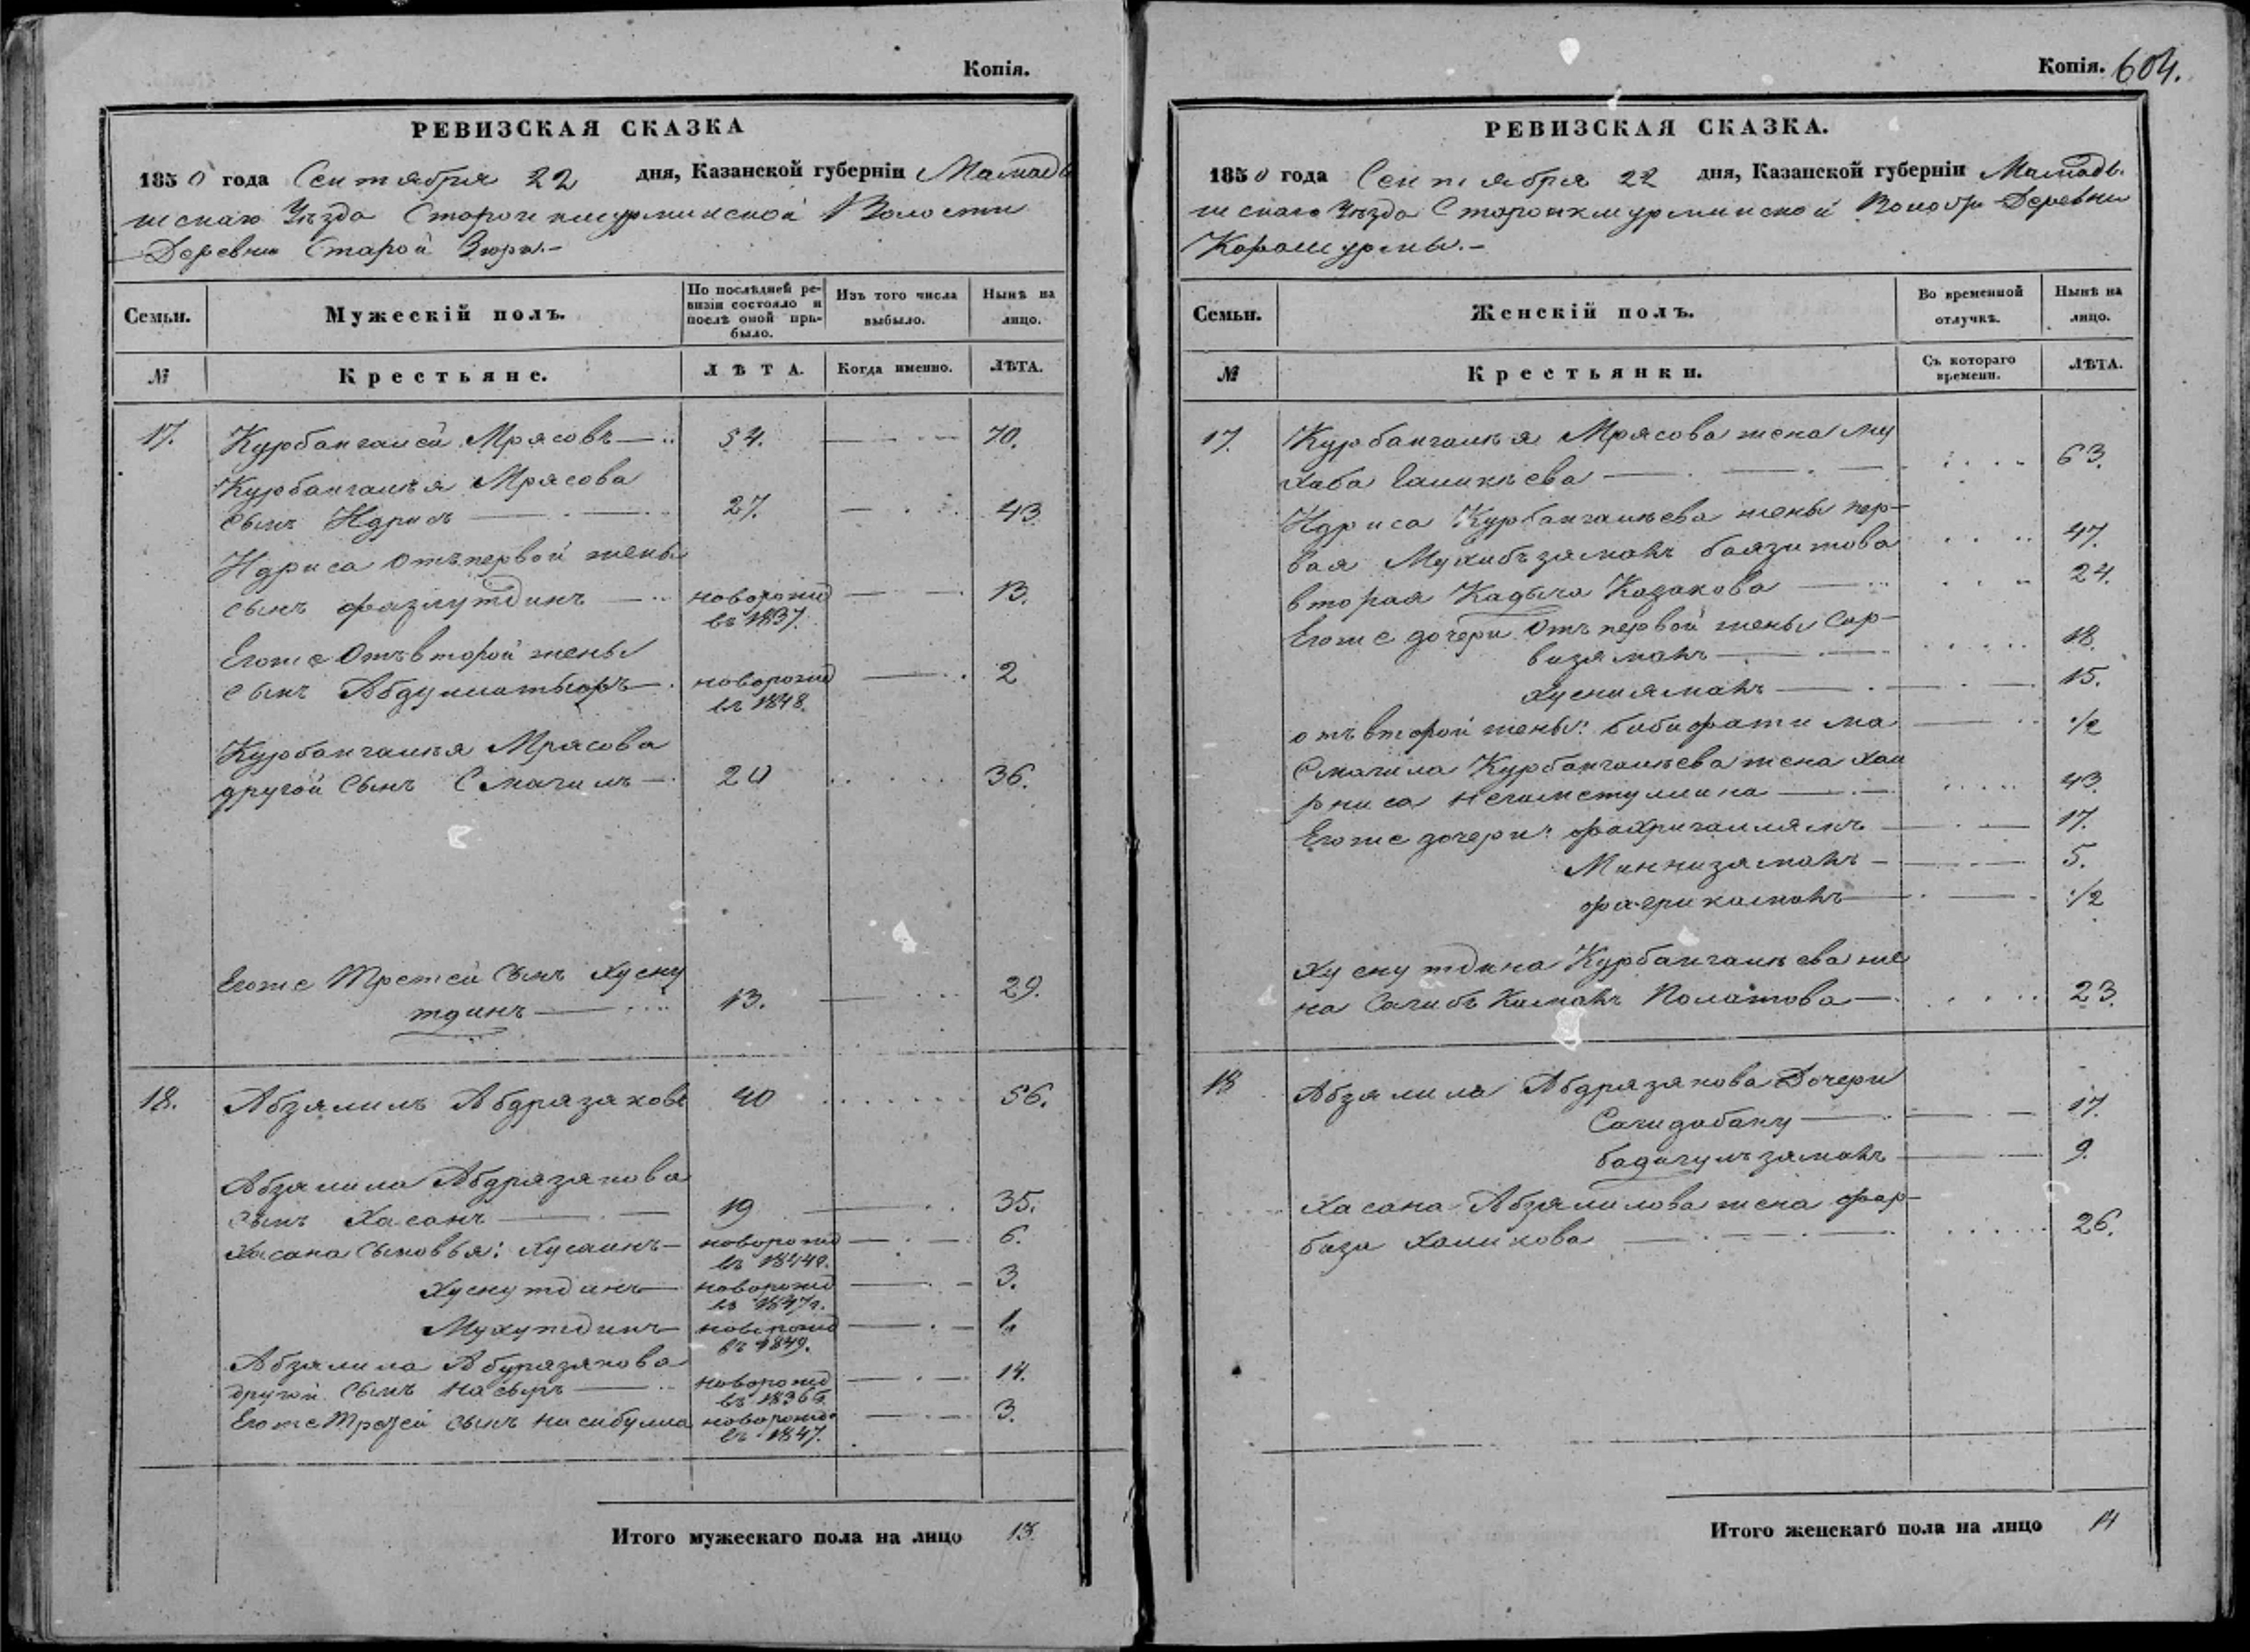 Копія.
РЕВИЗСКАЯ СКАЗКА
1850 года Сентября 22 дня, Казанской губерніи Мамады
шскаго Уѣзда Староикшурминской Волости
Деревни Старой Зюри.-
Семьи. Мужескій полъ. По послѣдней ревизіи состояло и послѣ оной прибыло. Изъ того числа выбыло. Нынѣ на лицо.
№ Крестьяне. ЛѢТА. Когда именно. ЛѢТА.
17. Курбангалей Мрясовъ 54. 70.
Курбангалѣя Мрясова
сынъ Идрисъ 27. 43
Идриса отъ первой жены
сынъ Фазлутдинъ новорожд 13.
въ 1837.
Егоже Отъ второй жены
сынъ новорожд 2
въ 1848.
Курбангалѣя Мрясова
другой сынъ Смагилъ 20 36.
Егоже Третей Сынъ Хусну
тдинъ 13. 29.
18. Абзялилъ Абдразяковъ 40 56.
Абзялила Абдразякова
сынъ Хасанъ 19 35.
Хасана сыновья: Хусаинъ новорожд 6.
въ
Хуснутдинъ новорожд 3.
въ 1847г.
Мухутдинъ новорожд 1.
въ 1849.
Абзялила Абдразякова
другой сынъ Насыръ новорожд 14.
въ 1836г.
Егоже Третей сынъ Насибулла новорожд. 3.
въ 1847.
Итого мужескаго пола на лицо 13.
Копія. 604.
РЕВИЗСКАЯ СКАЗКА.
1850 года Сентября 22 дня, Казанской губерніи Мамады
шскаго Уѣзда Староикшурминской Волости Деревни
Семьи. Женскій полъ. Во временной отлучкѣ. Нынѣ на лицо.
№ Крестьянки. Съ котораго времени. ЛѢТА.
17. Курбангалѣя Мрясова жена Му
хаба Галикѣева 63.
Идриса Курбангалѣева жены пер-
вая Мухибъзямалъ Баязитова 47.
вторая Кадыча Казакова 24.
Егоже дочери отъ первой жены Сар-
визямалъ 18.
Хуснизямалъ 15.
отъ второй жены: Бибифатима 1/2
Смагила Курбангалѣева жена Хай
рниса Негаметуллина 43.
Егоже дочери: 17.
Миннизямалъ 5.
1/2
Хуснутдина Курбангалѣева же
на Сагибъ Камалъ Полатова 23.
18 Абзялила Абдразякова Дочери
Сагидабану 17.
Бадигулъзямалъ 9.
Хасана Абзялилова жена Фар-
биза Халикова 26.
Итого женскаго пола на лицо 14